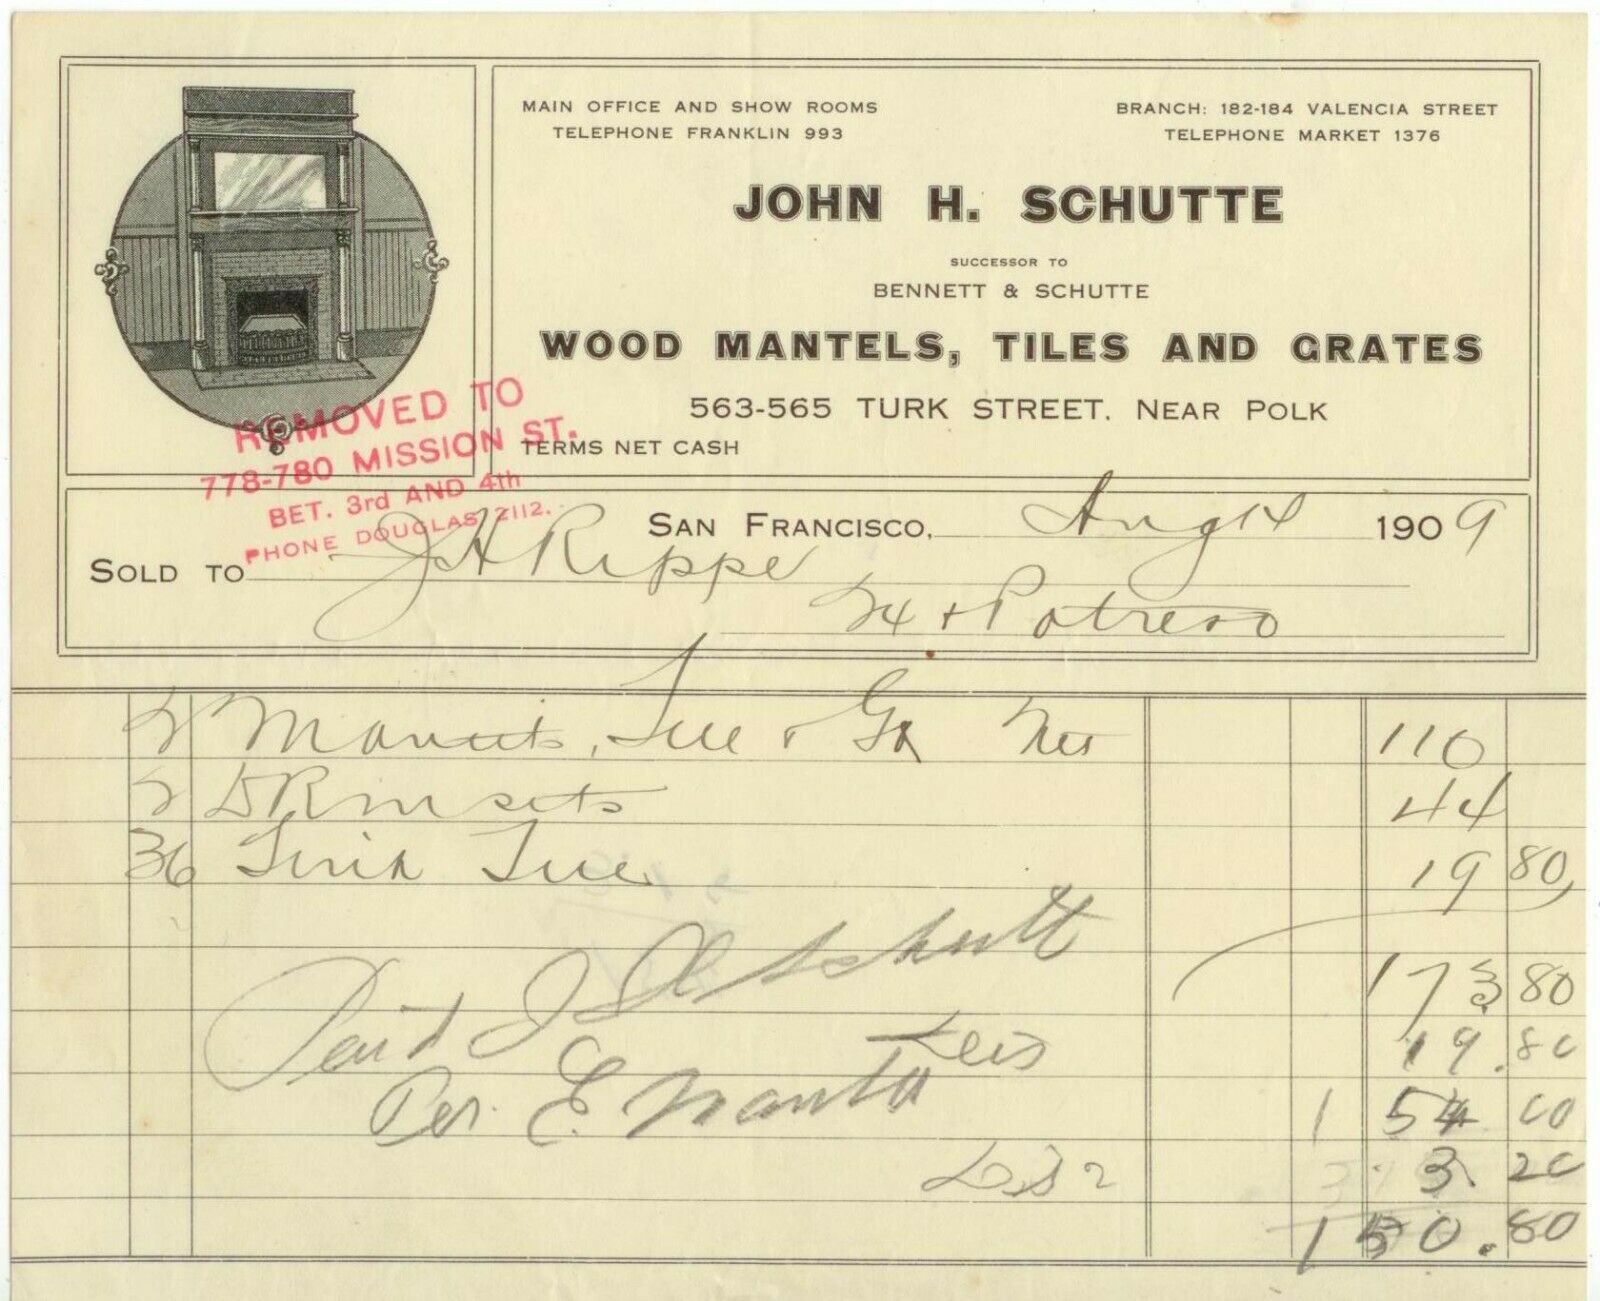 MAIN OFFICE AND SHOW ROOMS
TELEPHONE FRANKLIN 993
BRANCH: 182-184 VALENCIA STREET
TELEPHONE MARKET 1376
JOHN H. SCHUTTE
SUCCESSOR TO
BENNETT & SCHUTTE
WOOD MANTELS, TILES AND GRATES
563-565 TURK STREET. NEAR POLK
TERMS NET CASH
REMOVED TO
778-780 MISSION ST.
BET. 3rd AND 4th
PHONE DOUGLAS 2112.
SAN FRANCISCO, Aug 14 1909
SOLD TO J H Rippe
24 & Potrero
2 Mantels, Tile & Gr Net 110
2 sets 44
36 Tile 19 80
173 80
Less 19.80
154 00
3.20
150.80
Paid J H Schutt
Per. E.